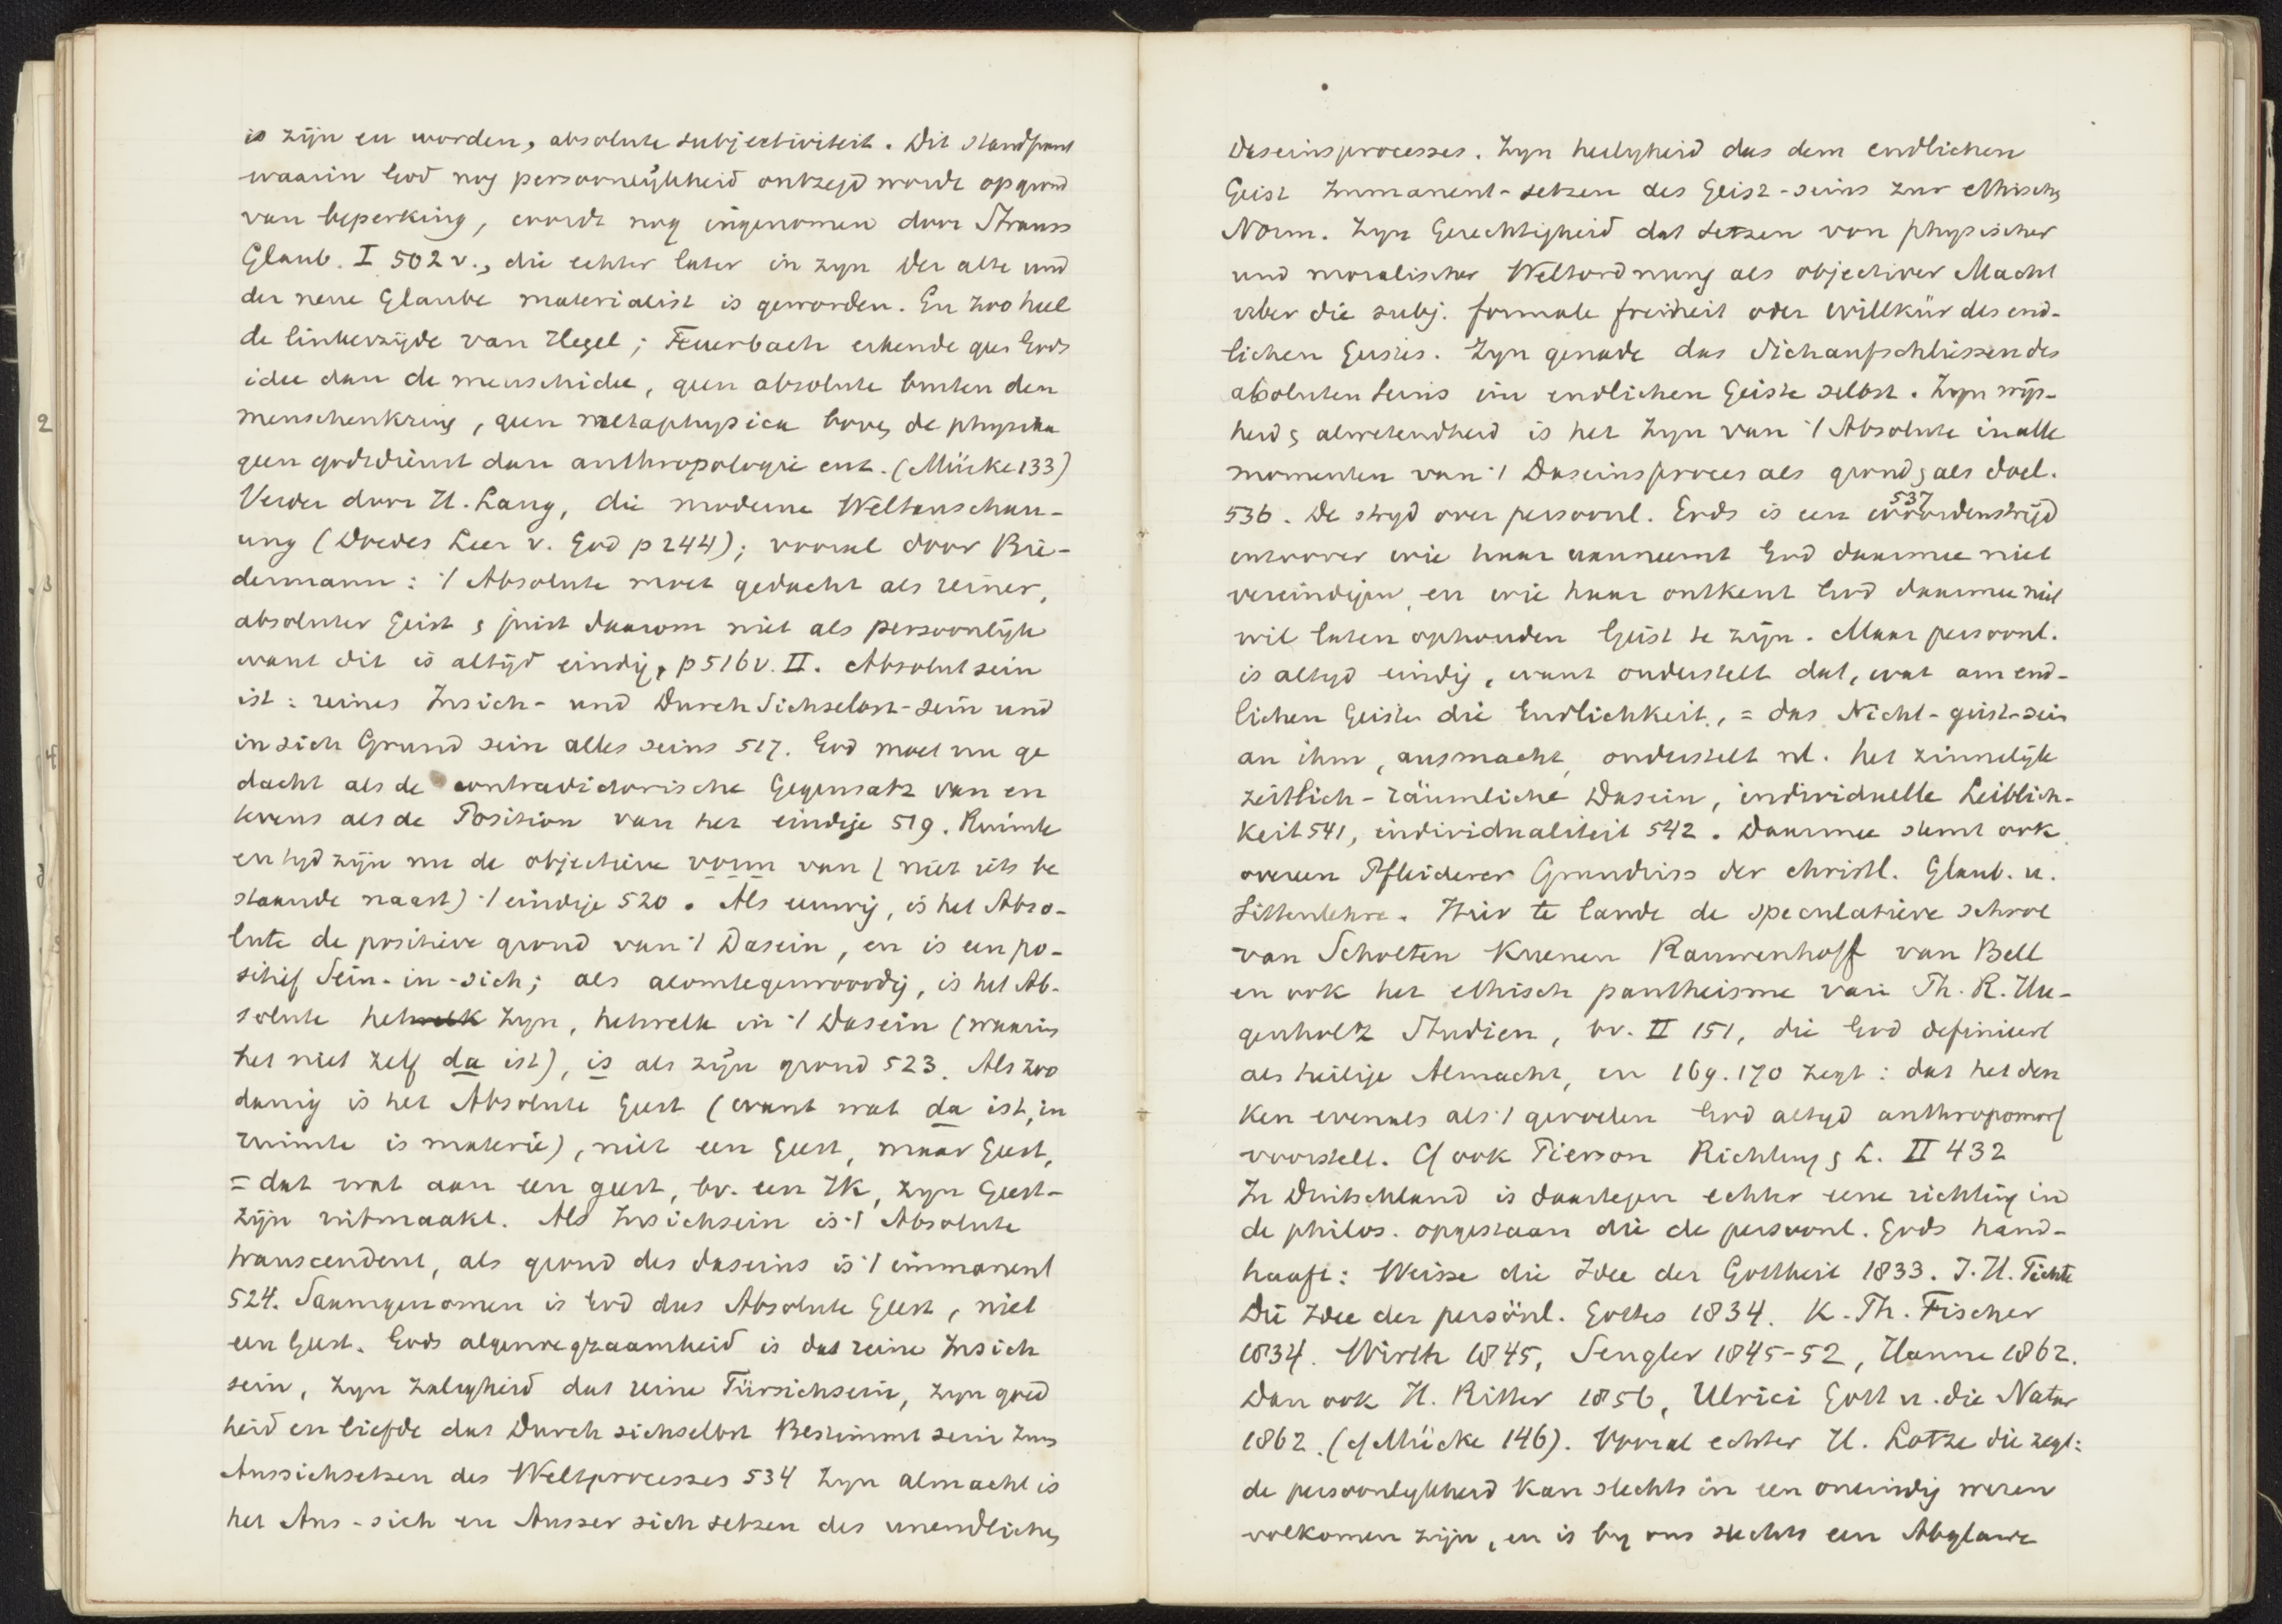 is zijn en worden, absolute subjectiviteit. Dit standpunt
waarin God nog persoonlijkheid ontzegd wordt op grond
van beperking, wordt nog ingenomen door Strauss
Glaub. I 502 v., die echter later in zyn Der alte und
der neue Glaube materialist is geworden. En zoo heel
de linkerzijde van Hegel; Feuerbach erkende geen Gods
idee dan de menschidee, geen absolute buiten den
menschenkring, geen metaphysica boven de physika
geen godsdienst dan anthropologie enz. (Mücke 133)
Verder door H. Lang, die moderne Weltanschau-
ung (Doedes Leer v. God p 244); vooral door Bie-
dermann: 't Absolute moet gedacht als reiner,
absoluter Geist & juist daarom niet als persoonlijk
want dit is altijd eindig, p 516 v. II. Absolut sein
ist: reines Insich- und Durch Sichselbst-sein und
in sich Grund sein alles seins 517. God moet nu ge
dacht als de contradictorische Gegensatz van en
tevens als de Position van het eindige 519. Ruimte
en tyd zijn nu de objectieve vorm van (niet iets be
staande naast) 't eindige 520. Als eeuwig, is het Abso-
lute de positieve grond van 't Dasein, en is een po-
sitief Sein-in-sich; als alomtegenwoordig, is het Ab-
solute hetwelk zyn, hetwelk in 't Dasein (waarin
het niet zelf da ist), is als zijn grond 523. Als zoo
danig is het Absolute Geest (want wat da ist, in
ruimte is materie), niet een Geest, maar Geest,
= dat wat aan een geest, bv. een Ik, zyn Geest-
zijn uitmaakt. Als Insichsein is 't Absolute
transcendent, als grond des daseins is 't immanent
524. Saamgenomen is God das Absolute Geest, niet
een Geest. Gods algenoegzaamheid is das reine Insich
sein, zyn zaligheid das reine Fürsichsein, zyn goed
heid en liefde das Durch sichselbst Bestimmt sein zum
Aussichsetzen des Weltprocesses 534 Zyn almacht is
het Aus-sich en Ausser sich setzen des unendlichen
Daseinsprocesses. Zyn heiligheid das dem endlichen
Geist Immanent-setzen des Geist-seins zur ethischen
Norm. Zyn Gerechtigheid das setzen von physischer
und moralischer Weltordnung als objectiver Macht
über die subj. formale freiheit oder Willkür des end-
lichen Geistes. Zyn genade das Sichaufschliessen des
absoluten Seins im endlichen Geiste selbst. Zyn wijs-
heid & alwetendheid is het zyn van 't Absolute in alle
momenten van 't Daseinsproces als grond & als doel.
536. De stryd over persoonl. Gods is een woordenstrijd 537
intoover wie haar aanneemt God daarmee niet
vereindigen, en wie haar ontkent God daarmee niet
wil laten ophouden Geist te zijn. Maar persoonl.
is altyd eindig, want onderstelt dat, wat am end-
lichen Geiste die Endlichkeit, = das Nicht-geist-sein
an ihm, ausmacht, onderstelt nl. het zinnelijk
zeitlich-räumliche Dasein, individuelle Leiblich-
keit 541, individualiteit 542. Daarmee stemt ook
overeen Pfleiderer Grundriss der christl. Glaub. u.
Sittenlehre. Hier te lande de speculatieve school
van Scholten Kuenen Rauwenhoff van Bell
en ook het ethisch pantheisme van Th. R. Hu-
genholtz Studien, bv. II 151, die God definieert
als heilige Almacht, en 169. 170 zegt: dat het den
ken evenals als 't gevoelen God altyd anthropomorf
voorstelt. Cf ook Pierson Richting & L. II 432
In Duitschland is daartegen echter eene richting in
de philos. opgestaan die de persoonl. Gods hand-
haaft: Weisse die Idee der Gottheit 1833. J. H. Fichte
Die Idee der persönl. Gottes 1834. K. Th. Fischer
1834. Wirth 1845, Sengler 1845-52, Hanne 1862.
Dan ook H. Ritter 1856, Ulrici Gott u. die Natur
1862. (cf Mücke 146). Vooral echter H. Lotze die zegt:
de persoonlykheid kan slechts in een oneindig wezen
volkomen zijn, en is by ons slechts een Abglanz